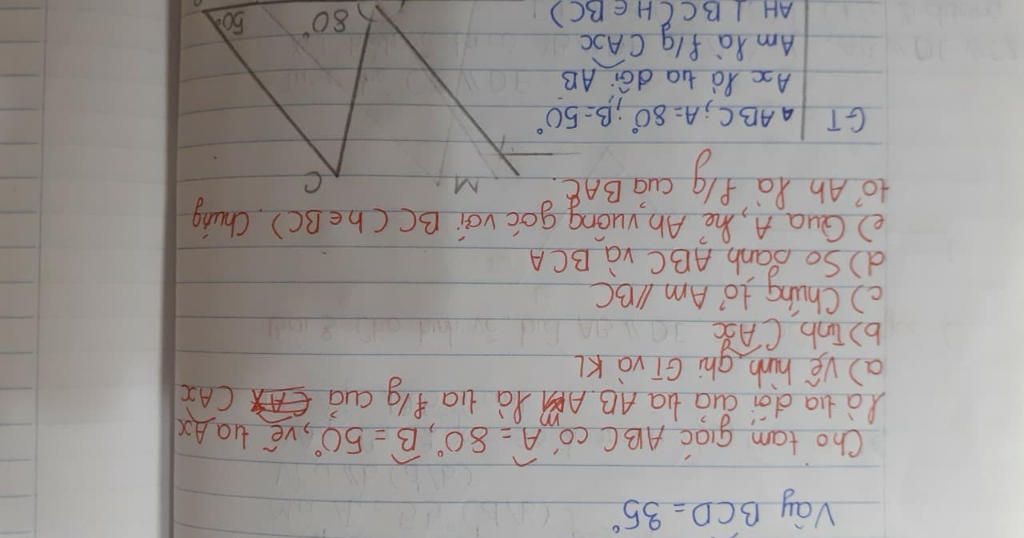 Vậy BCD = 35°
Cho tam giác ABC có Â = 80°, B̂ = 50°, vẽ tia Ax
là tia đối của tia AB. Am là tia f/g của CAx
a) Vẽ hình, ghi GT và KL
b) Tính CAx
c) Chứng tỏ Am // BC
d) So sánh ABC và BCA
e) Qua A, kẻ Ah vuông góc với BC (h ∈ BC). Chứng
tỏ Ah là f/g của BAC.
GT
△ABC; A = 80°; B = 50°
Ax là tia đối AB
Am là f/g CAx
AH ⊥ BC (H ∈ BC)
M
C
80°
50°